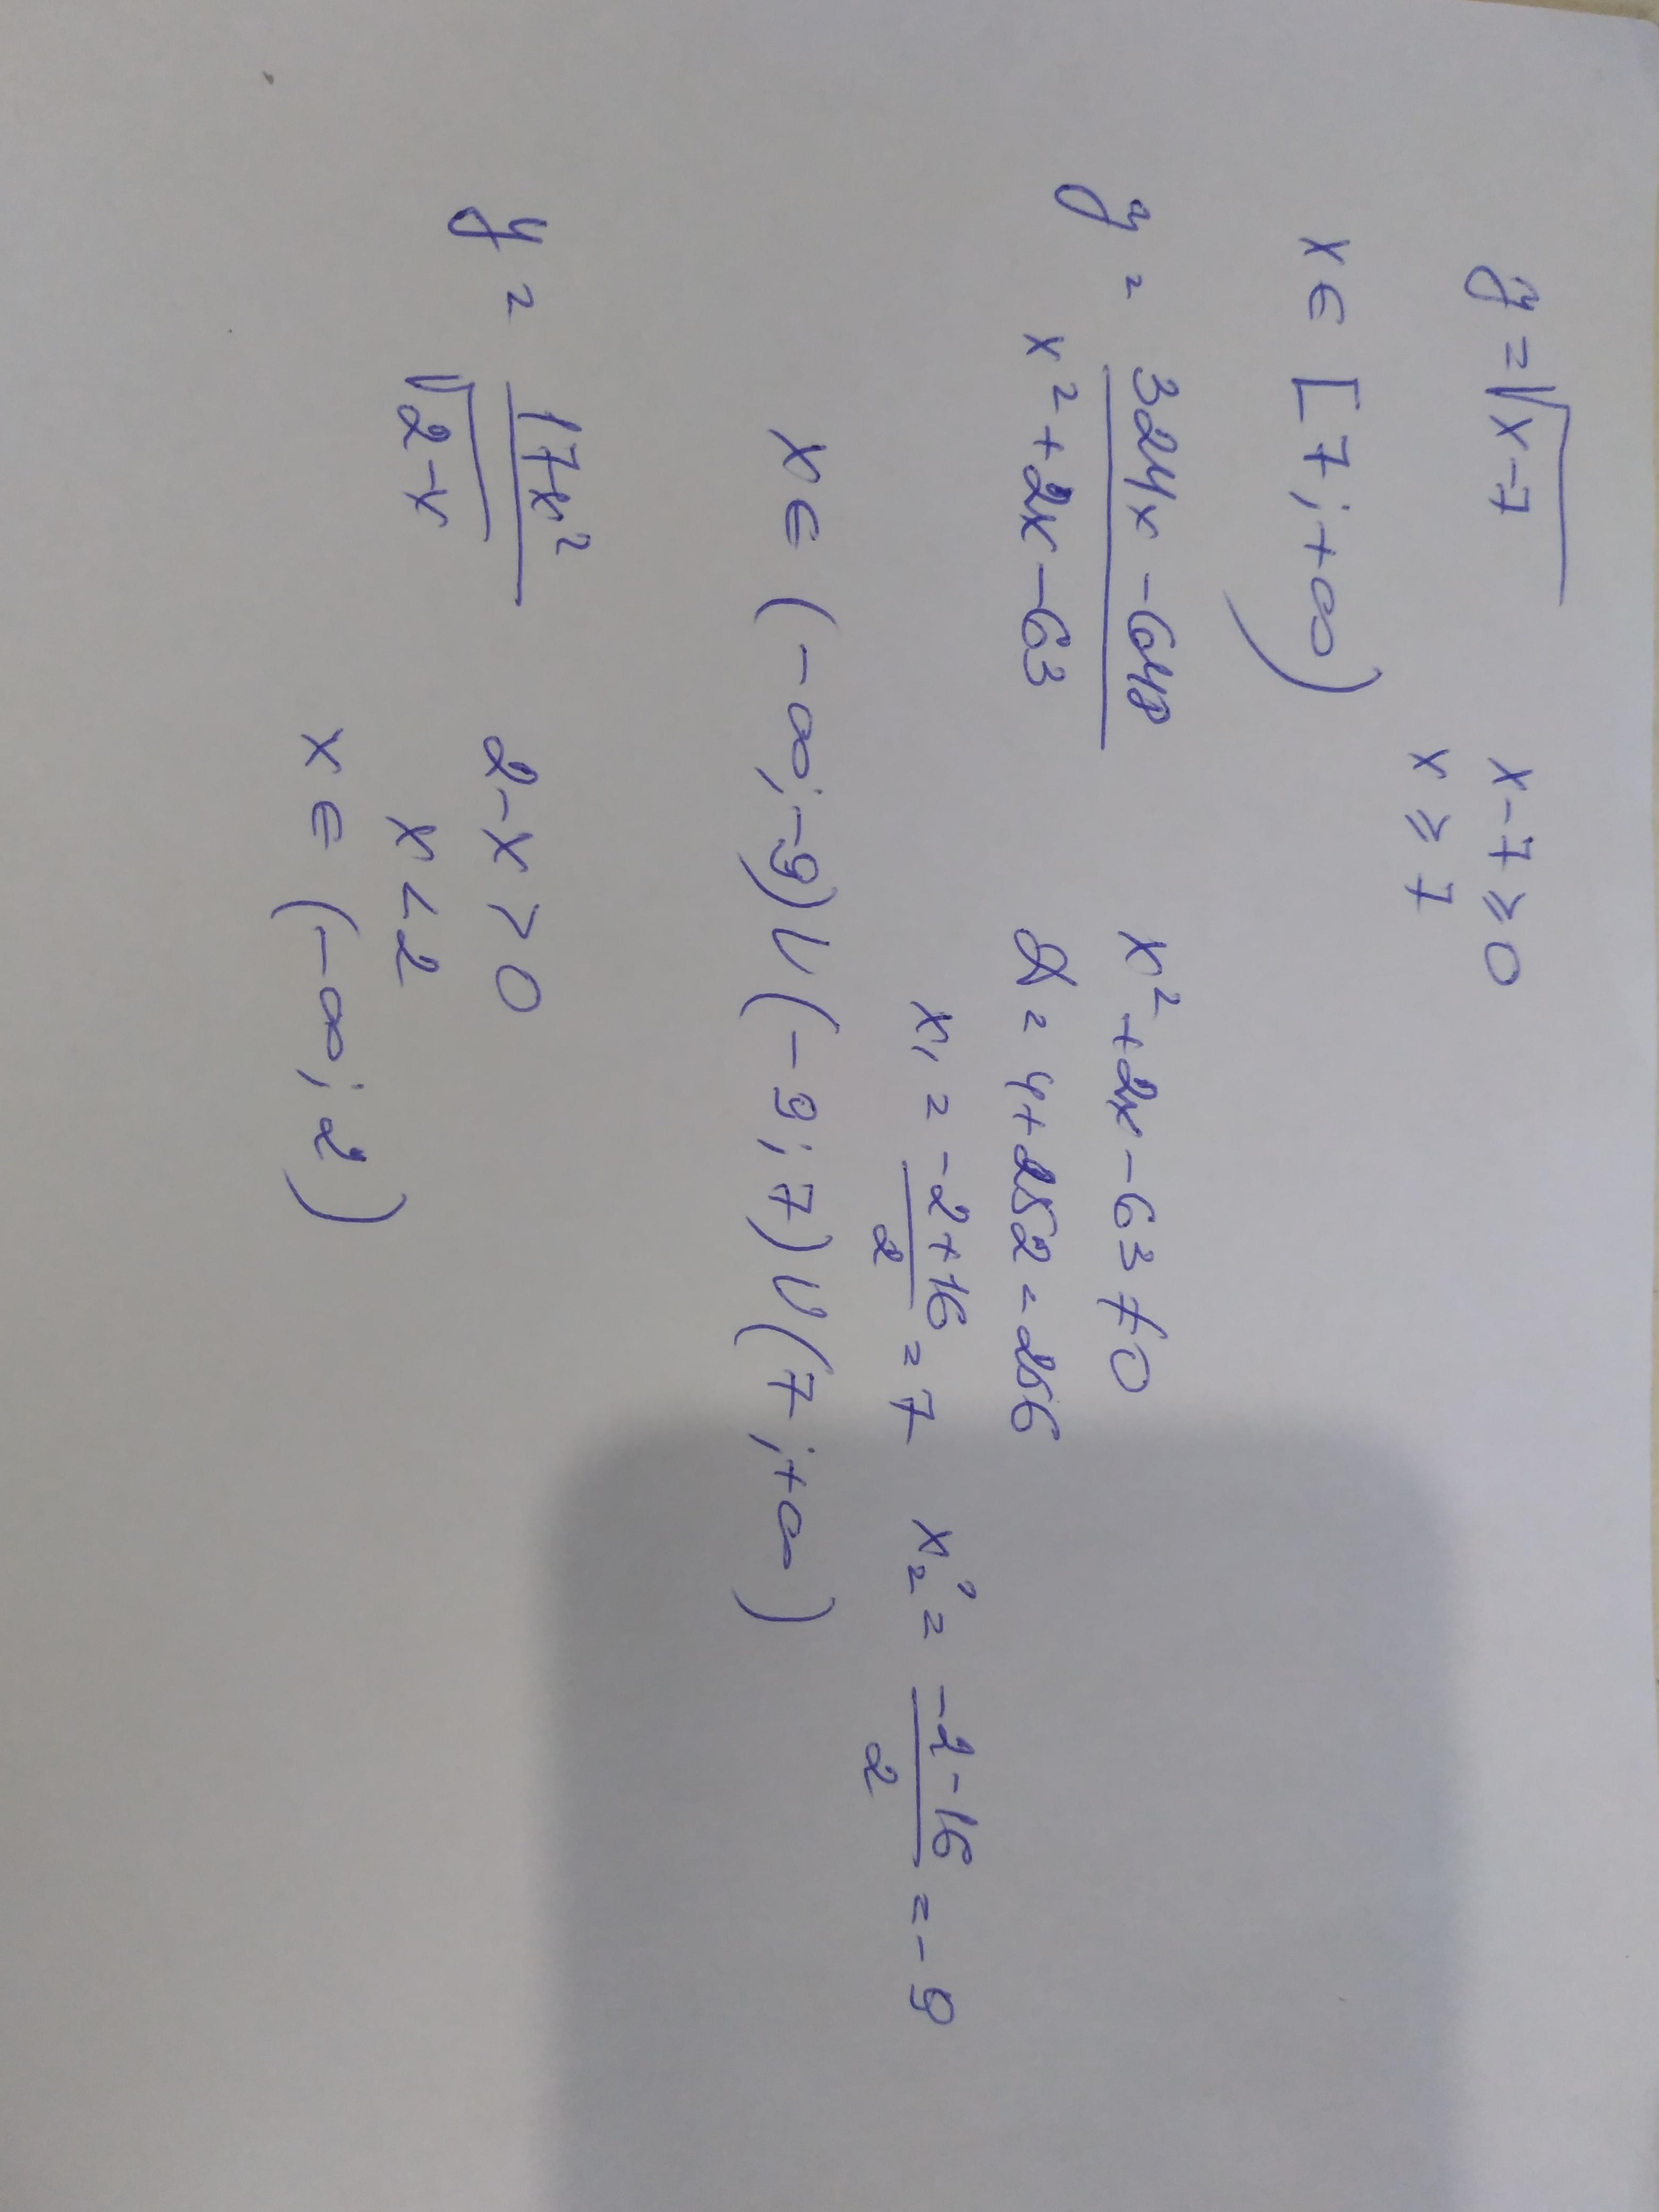 y = √(x-7)   x-7 ⩾ 0
x ⩾ 7
x ∈ [7; +∞)
y = (324x - 648)/(x² + 2x - 63)   x² + 2x - 63 ≠ 0
D = 4 + 252 = 256
x₁ = (-2+16)/2 = 7   x₂ = (-2-16)/2 = -9
x ∈ (-∞; -9) ∪ (-9; 7) ∪ (7; +∞)
y = 17x²/√(2-x)   2-x > 0
x < 2
x ∈ (-∞; 2)